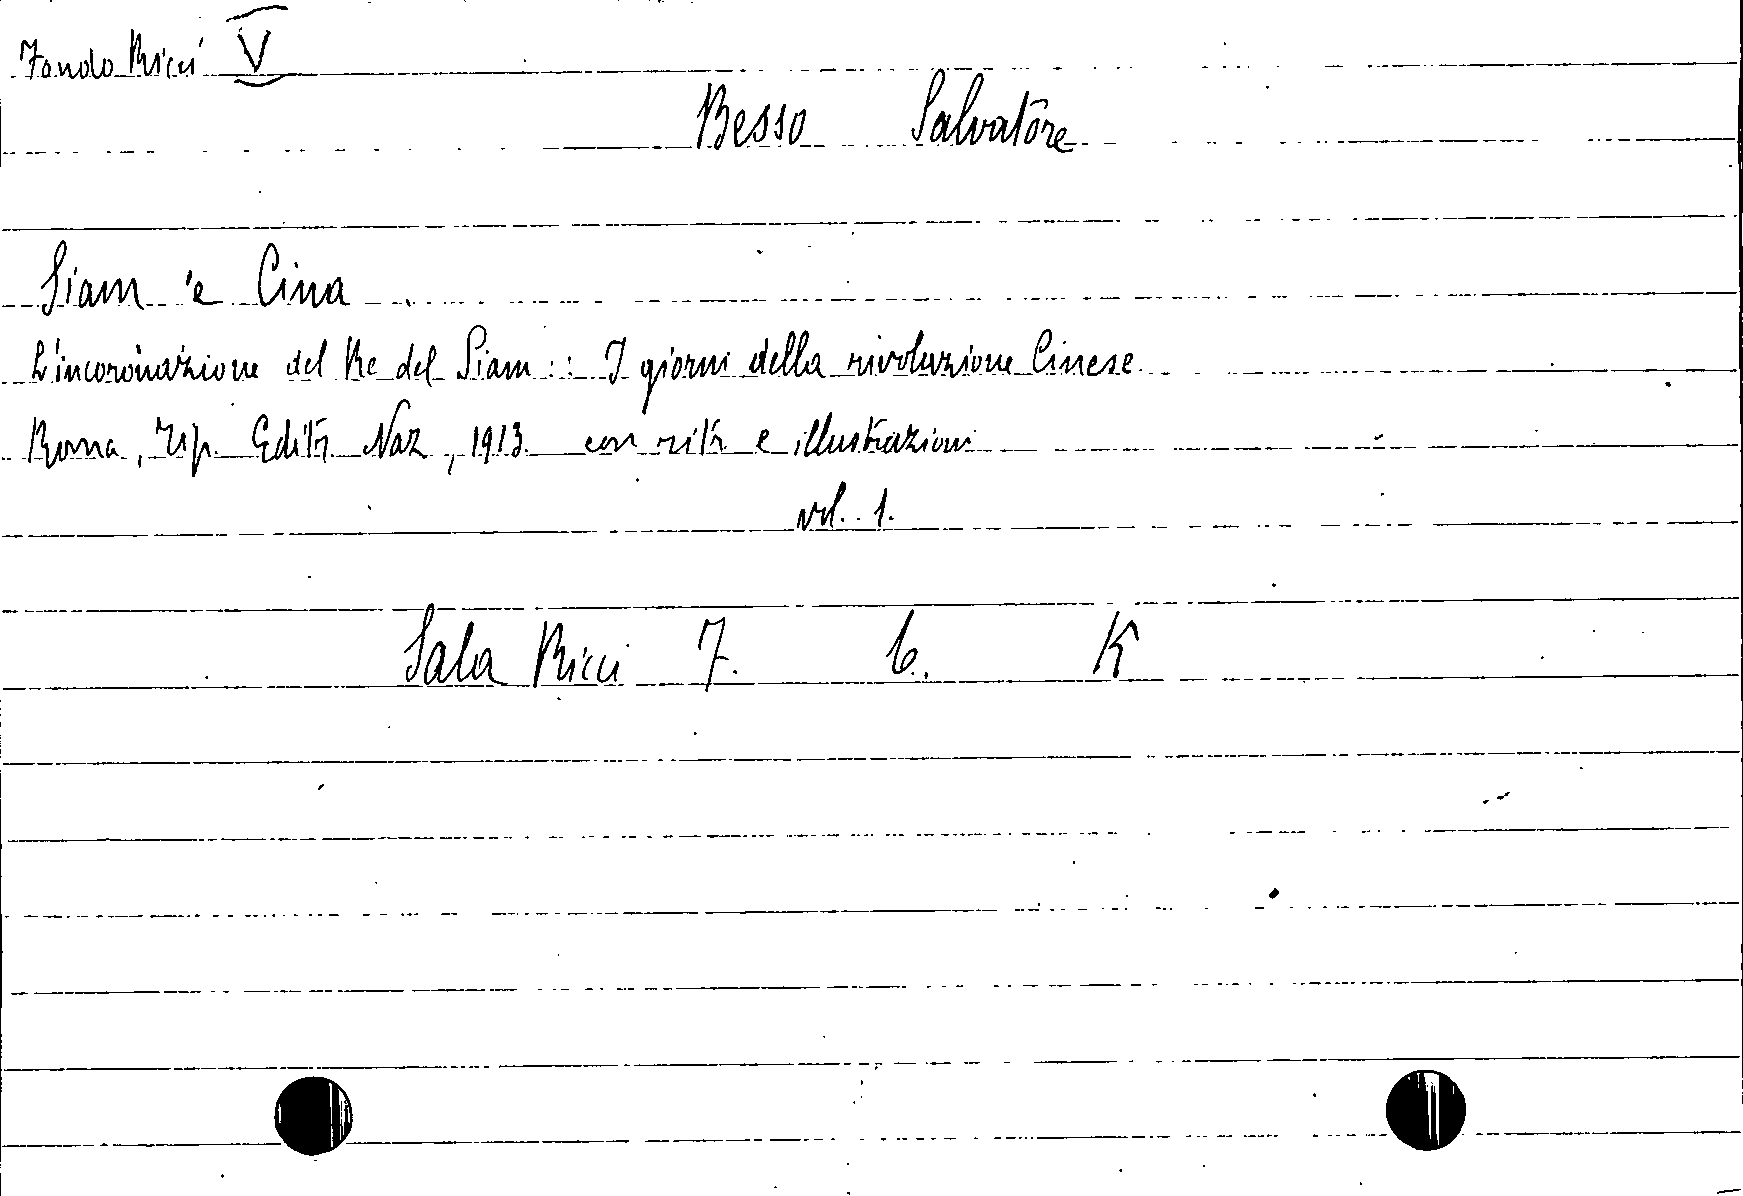 Fondo Ricci V
Besso Salvatore
Siam e Cina
L'incoronazione del Re del Siam :: I giorni della rivoluzione Cinese
Roma, Tip. Editr. Naz, 1913 con ritr. e illustrazioni
vol. 1.
Sala Ricci 7. 6. K